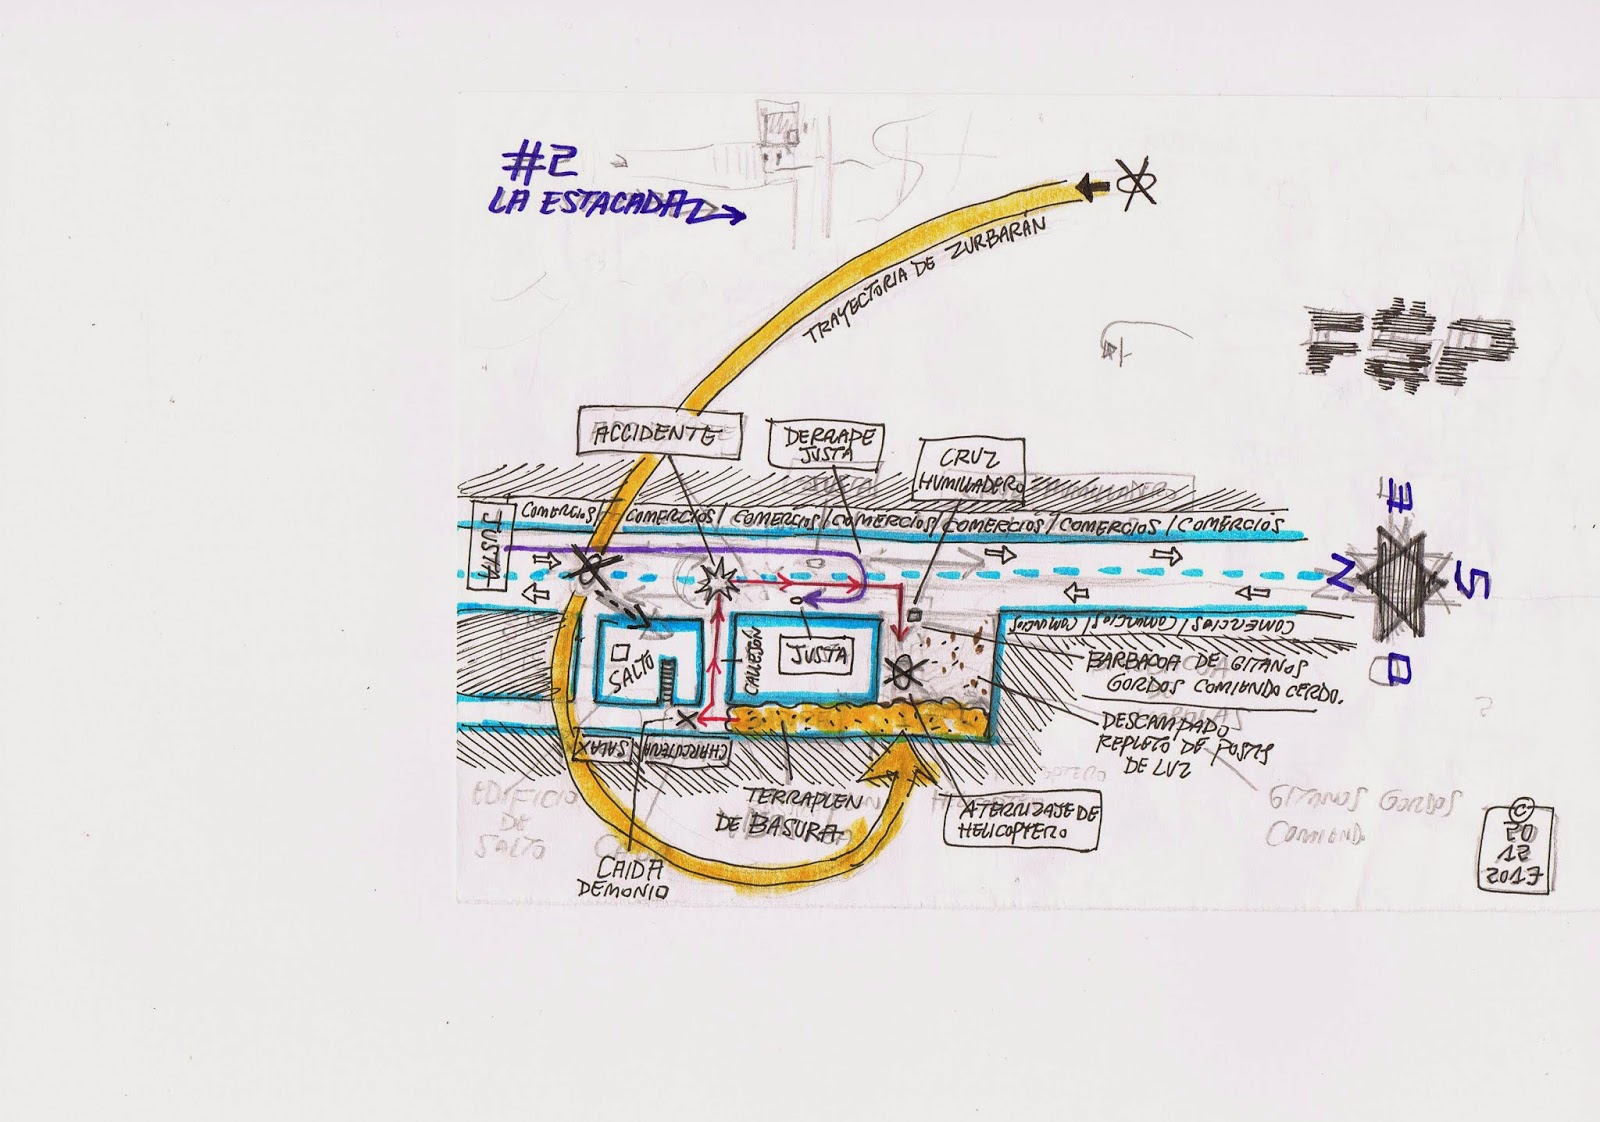 #2
LA ESTACADA
TRAYECTORIA DE ZURBARÁN
ACCIDENTE
DERRAPE
JUSTA
CRUZ
HUMILLADERO
COMERCIOS / COMERCIOS / COMERCIOS / COMERCIOS / COMERCIOS / COMERCIOS / COMERCIOS
JUSTA
E
N
S
O
SALTO
CALLEJÓN
JUSTA
COMERCIOS / COMERCIOS / COMERCIOS
BARBACOA DE GITANOS
GORDOS COMIENDO CERDO.
DESCAMPADO
REPLETO DE POSTES
DE LUZ
CHARCUTERIA
TERRAPLEN
DE BASURA
ATERRIZAJE DE
HELICOPTERO
CAIDA
DEMONIO
EDIFICIO
DE
SALTO
GITANOS GORDOS
COMIENDO
©
20
12
2017